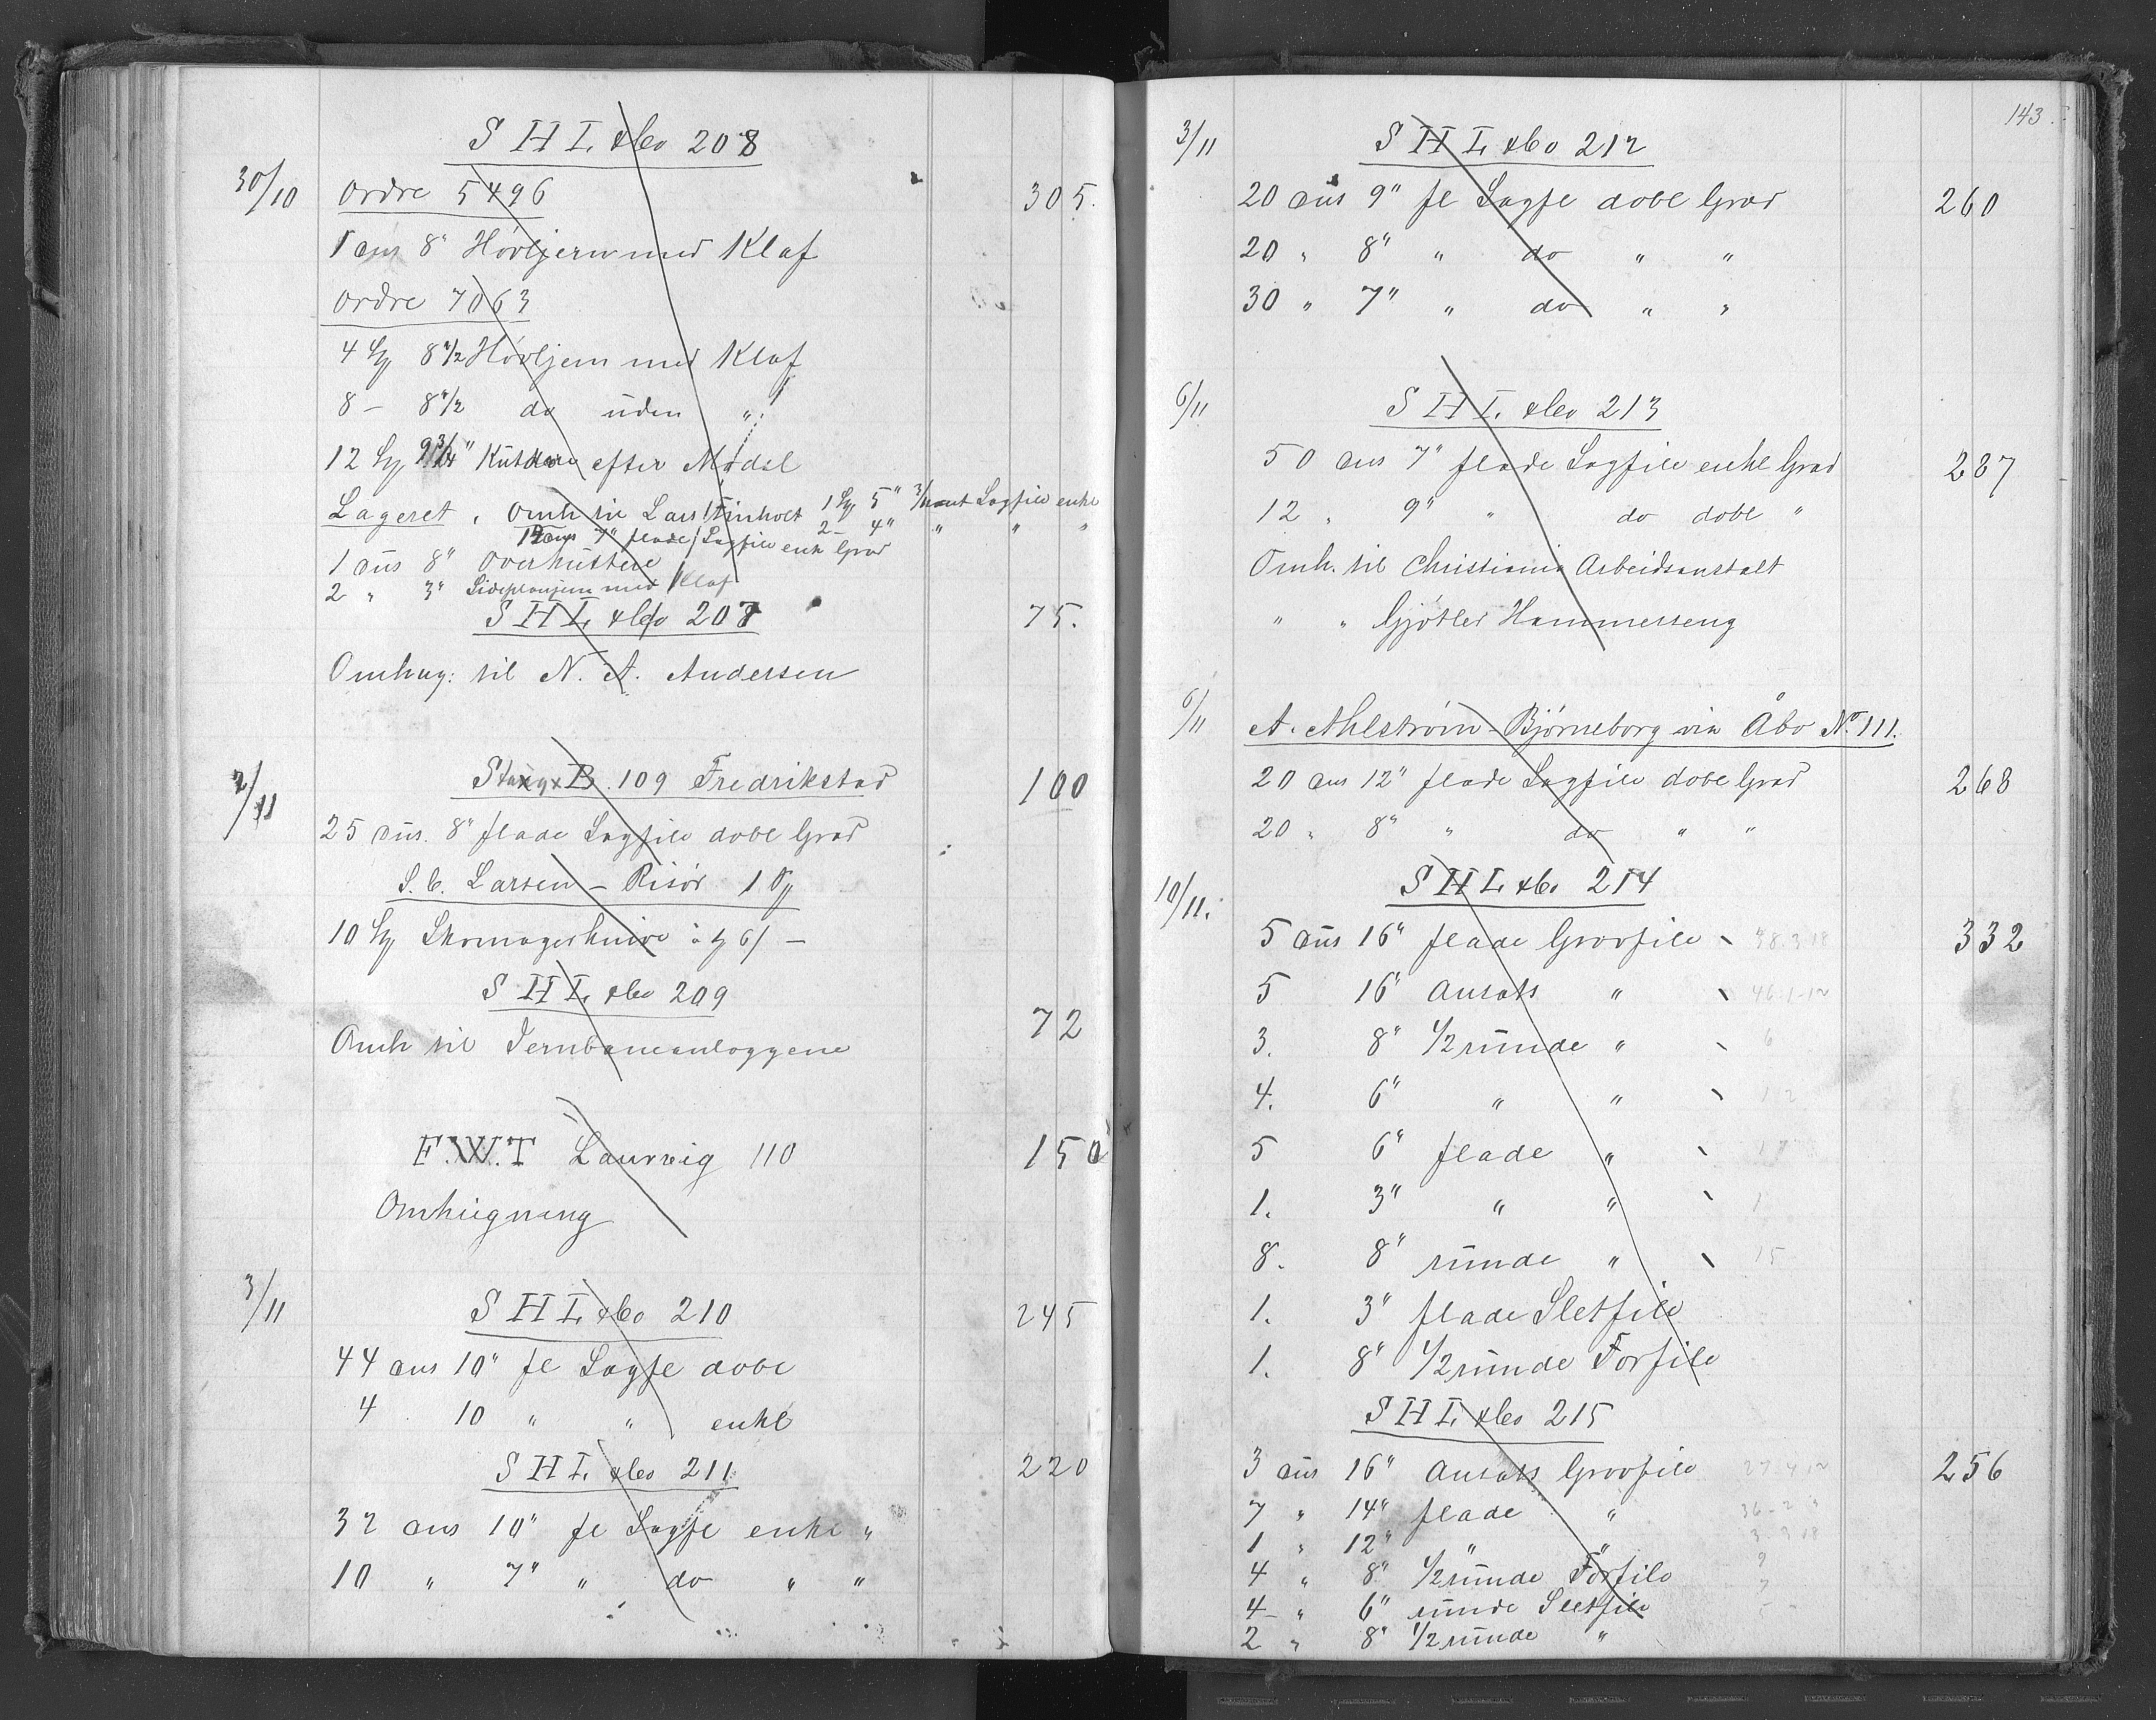 S H L & Co 208
30/10 Ordre 5496 305.
1 dus 8" Høvljern med Klaf
Ordre 7063
4 8 1/2 Høvljern med Klaf
8 - 8 1/2 do uden "
12 9 3/4" efter Model
Lageret, Omh til Lars 1 5" 3/kant Sagfile enke
12 dus 7" flade Sagfile enk Grad 2 - 4" " " "
1 dus 8" Overhuttere
2 " 3" med Klaf
S H L & Co 207 75.
Omhug: til N. A. Andersen
2/11 B. 109 Fredrikstad 100
25 dus. 8" flade Sagfile dobl Grad
S. C. Larsen - Risør 1
10 Skomagerknive à 6/ -
S H L & Co 209
Omh til Jernbaneanlæggene 72
F.W.T Laurvig 110 150
Omhugning
3/11 S H L & Co 210 245
44 dus 10" fl Sagfe dobl
4 10 " " enkl
S H L & Co 211 220
32 dus 10" fl Sagfe enke "
10 " 7" " do " "
143
3/11 S H L & Co 212
20 dus 9" fl Sagfe dobl Grad 260
20 " 8" " do " "
30 " 7" " do " "
6/11 S H L & Co 213
50 dus 7" flade Sagfile enkl Grad 287
12 " 9" " do dobl "
Omh. til Christiania Arbeidsanstalt
" " Gjøtler Hammerseng
6/11 A. Ahlström - Bjørneborg via Åbo No. 111.
20 dus 12" flade Sagfile dobl Grad 268
20 " 8" " do " "
10/11. S H L & Co 214
5 dus 16" flade Grovfile 332
5 16" Ansats "
3. 8" 1/2 runde " 6
4. 6" " " 12
5 6" flade "
1. 3" " " 1
8. 8" runde " 15
1. 3" flade Sletfile
1. 8" 1/2 runde Forfile
S H L & Co 215
3 dus 16" Ansats Grovfile 256
7 " 14" flade "
1 " 12" " "
4 " 8" 1/2 runde Forfile
4 - " 6" runde Sletfile
2 " 8" 1/2 runde "